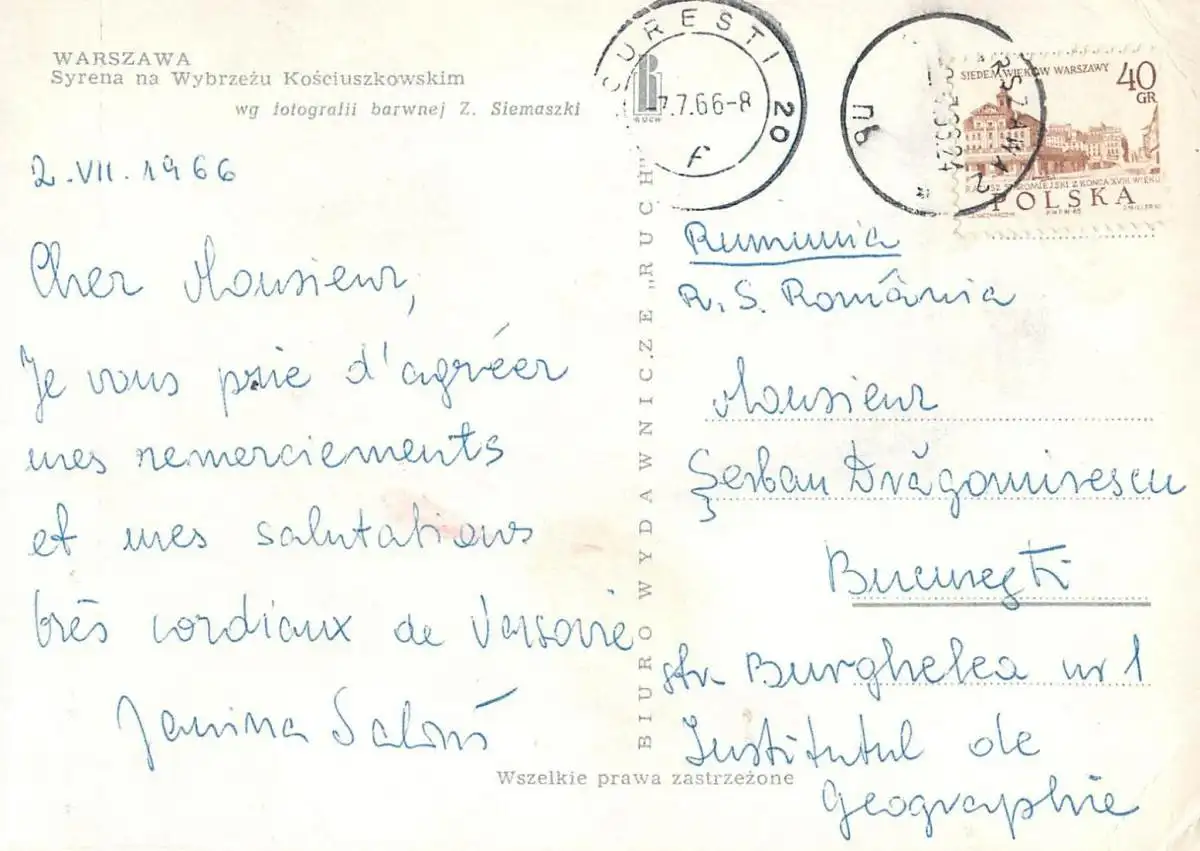 WARSZAWA
Syrena na Wybrzeżu Kościuszkowskim
wg fotografii barwnej Z. Siemaszki
2.VII.1966
Cher Monsieur,
Je vous prie d'agréer
mes remerciements
et mes salutations
très cordiaux de Varsovie
Janina
BIURO WYDAWNICZE „RUCH"
RUCH
CUREȘTI 20
7.7.66-8
F
SIEDEM WIEKÓW WARSZAWY
40
GR
RATUSZ STAROMIEJSKI Z KOŃCA XVIII WIEKU
POLSKA
Rumunia
R. S. România
Monsieur
Șerban Drăgomirescu
București
str Burghelea nr 1
Institutul de
Geographie
Wszelkie prawa zastrzeżone